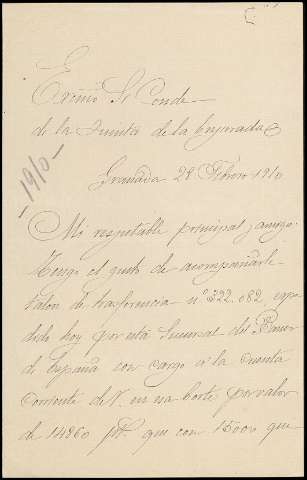 Exmo Sr Conde
de la Quinta de la Enjarada
Granada 28 Febrero 1910
-1910-
Mi respetable principal y amigo:
Tengo el gusto de acompañarle
talon de trasferencia nº 322.082, expe
dido hoy por esta Sucursal del Banco
de España con cargo a la cuenta
corriente de V. en esa Corte por valor
de 14860 pts. que con 15000 que